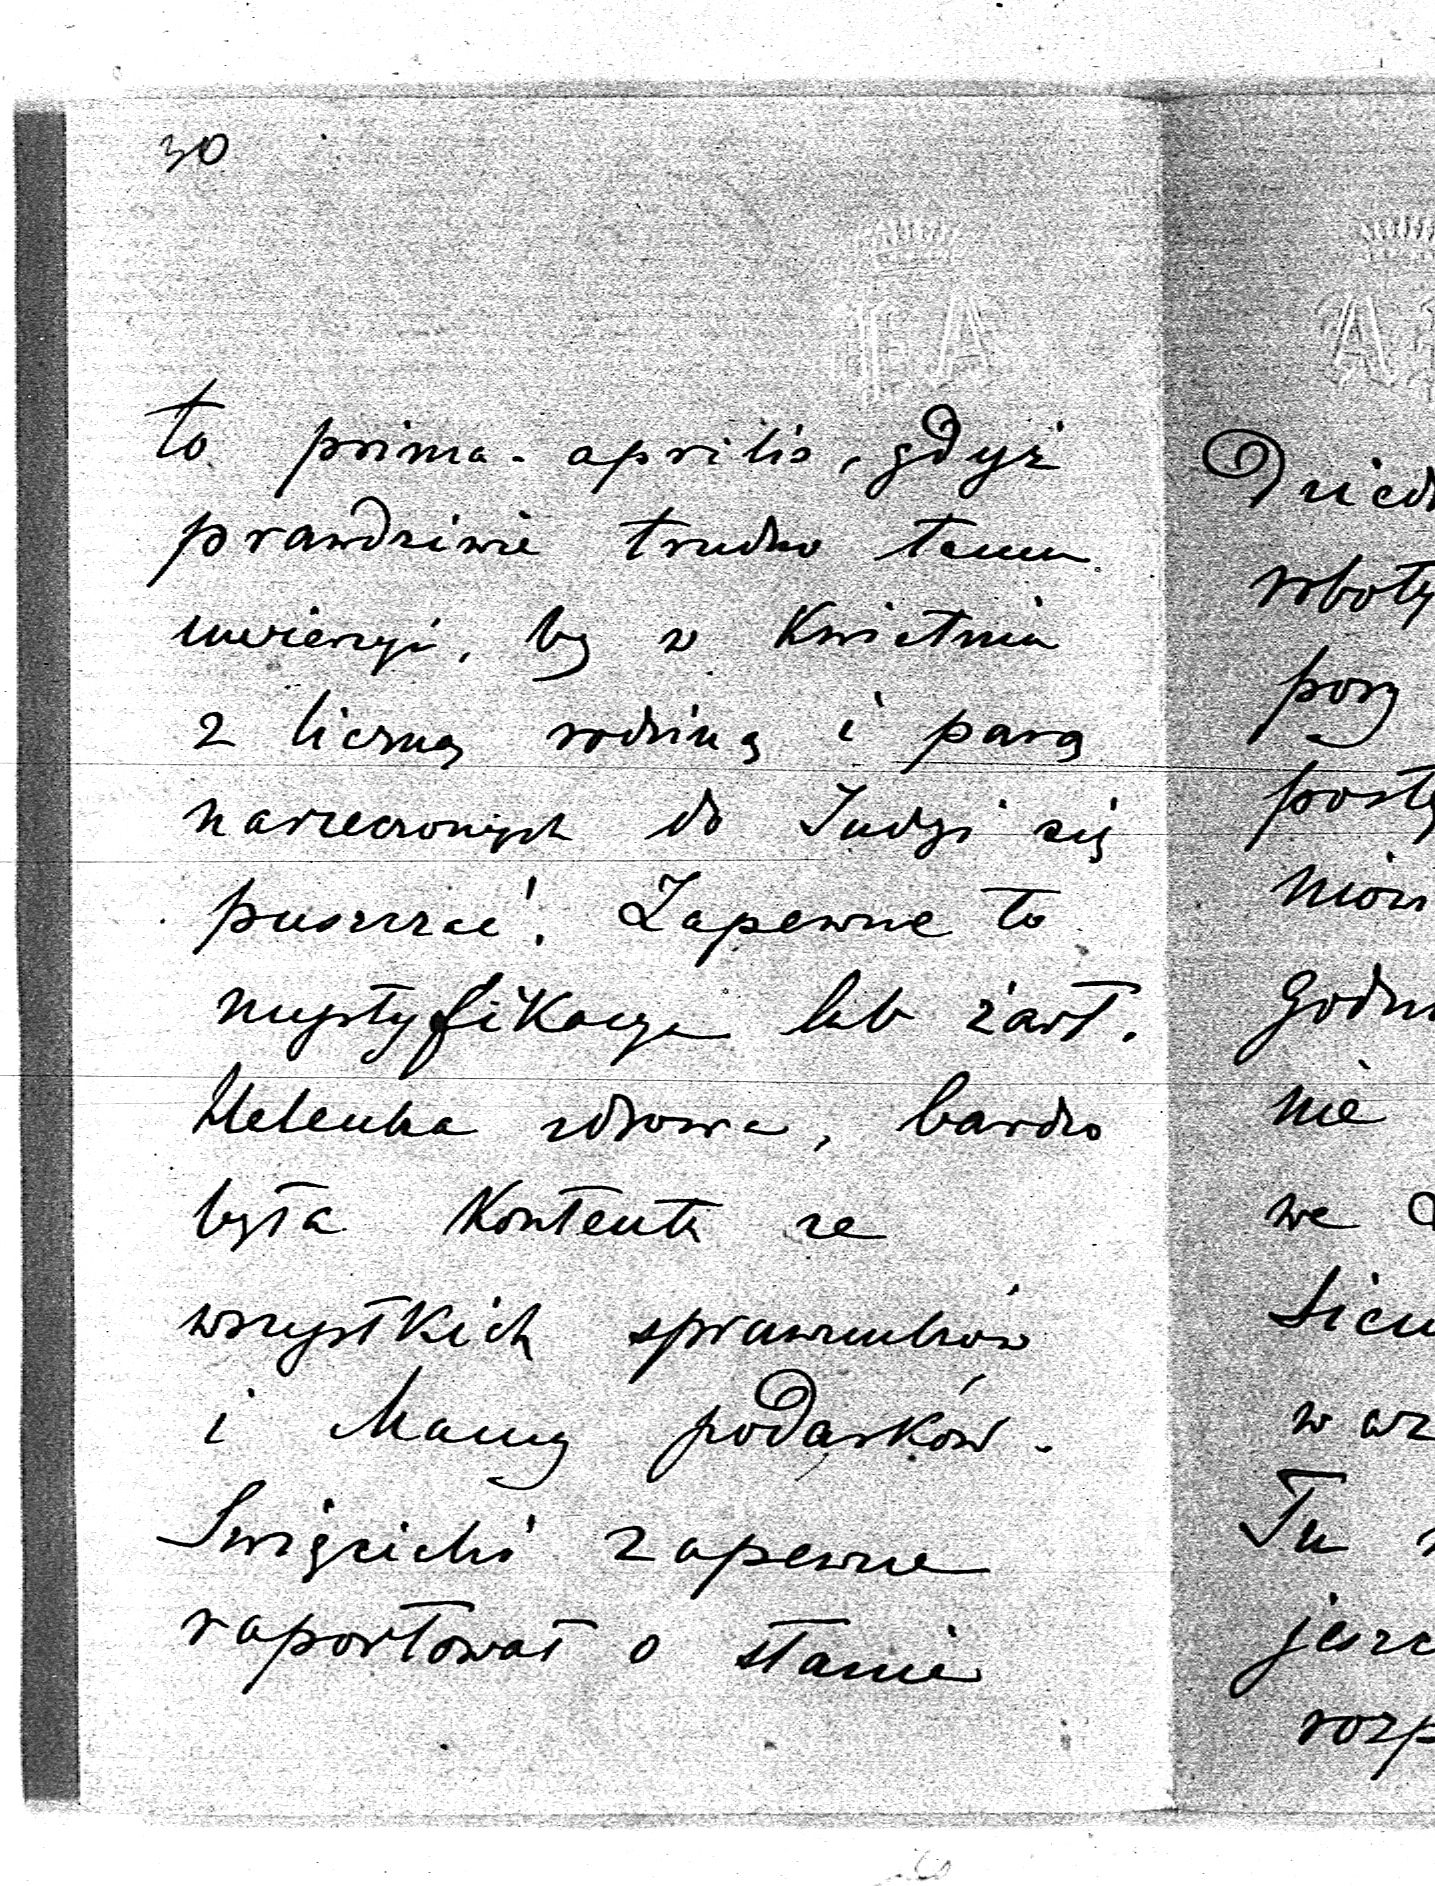 30
to prima-aprilis, gdyż
prawdziwie trudno temu
uwierzyć, by w Kwietniu
z liczną rodziną i parą
narzeczonych do Indyi się
puszczać! Zapewne to
mystyfikacya lub żart.
Helenka zdrowa, bardzo
była Kontenta ze
wszystkich sprawunków
i Mamy podarków.
Święcicki zapewne
raportował o stanie
roboty
pory
nie
we
Tu